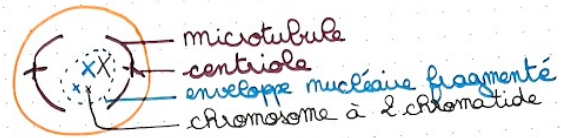 microtubule
centriole
enveloppe nucléaire fragmenté
chromosome à 2 chromatide